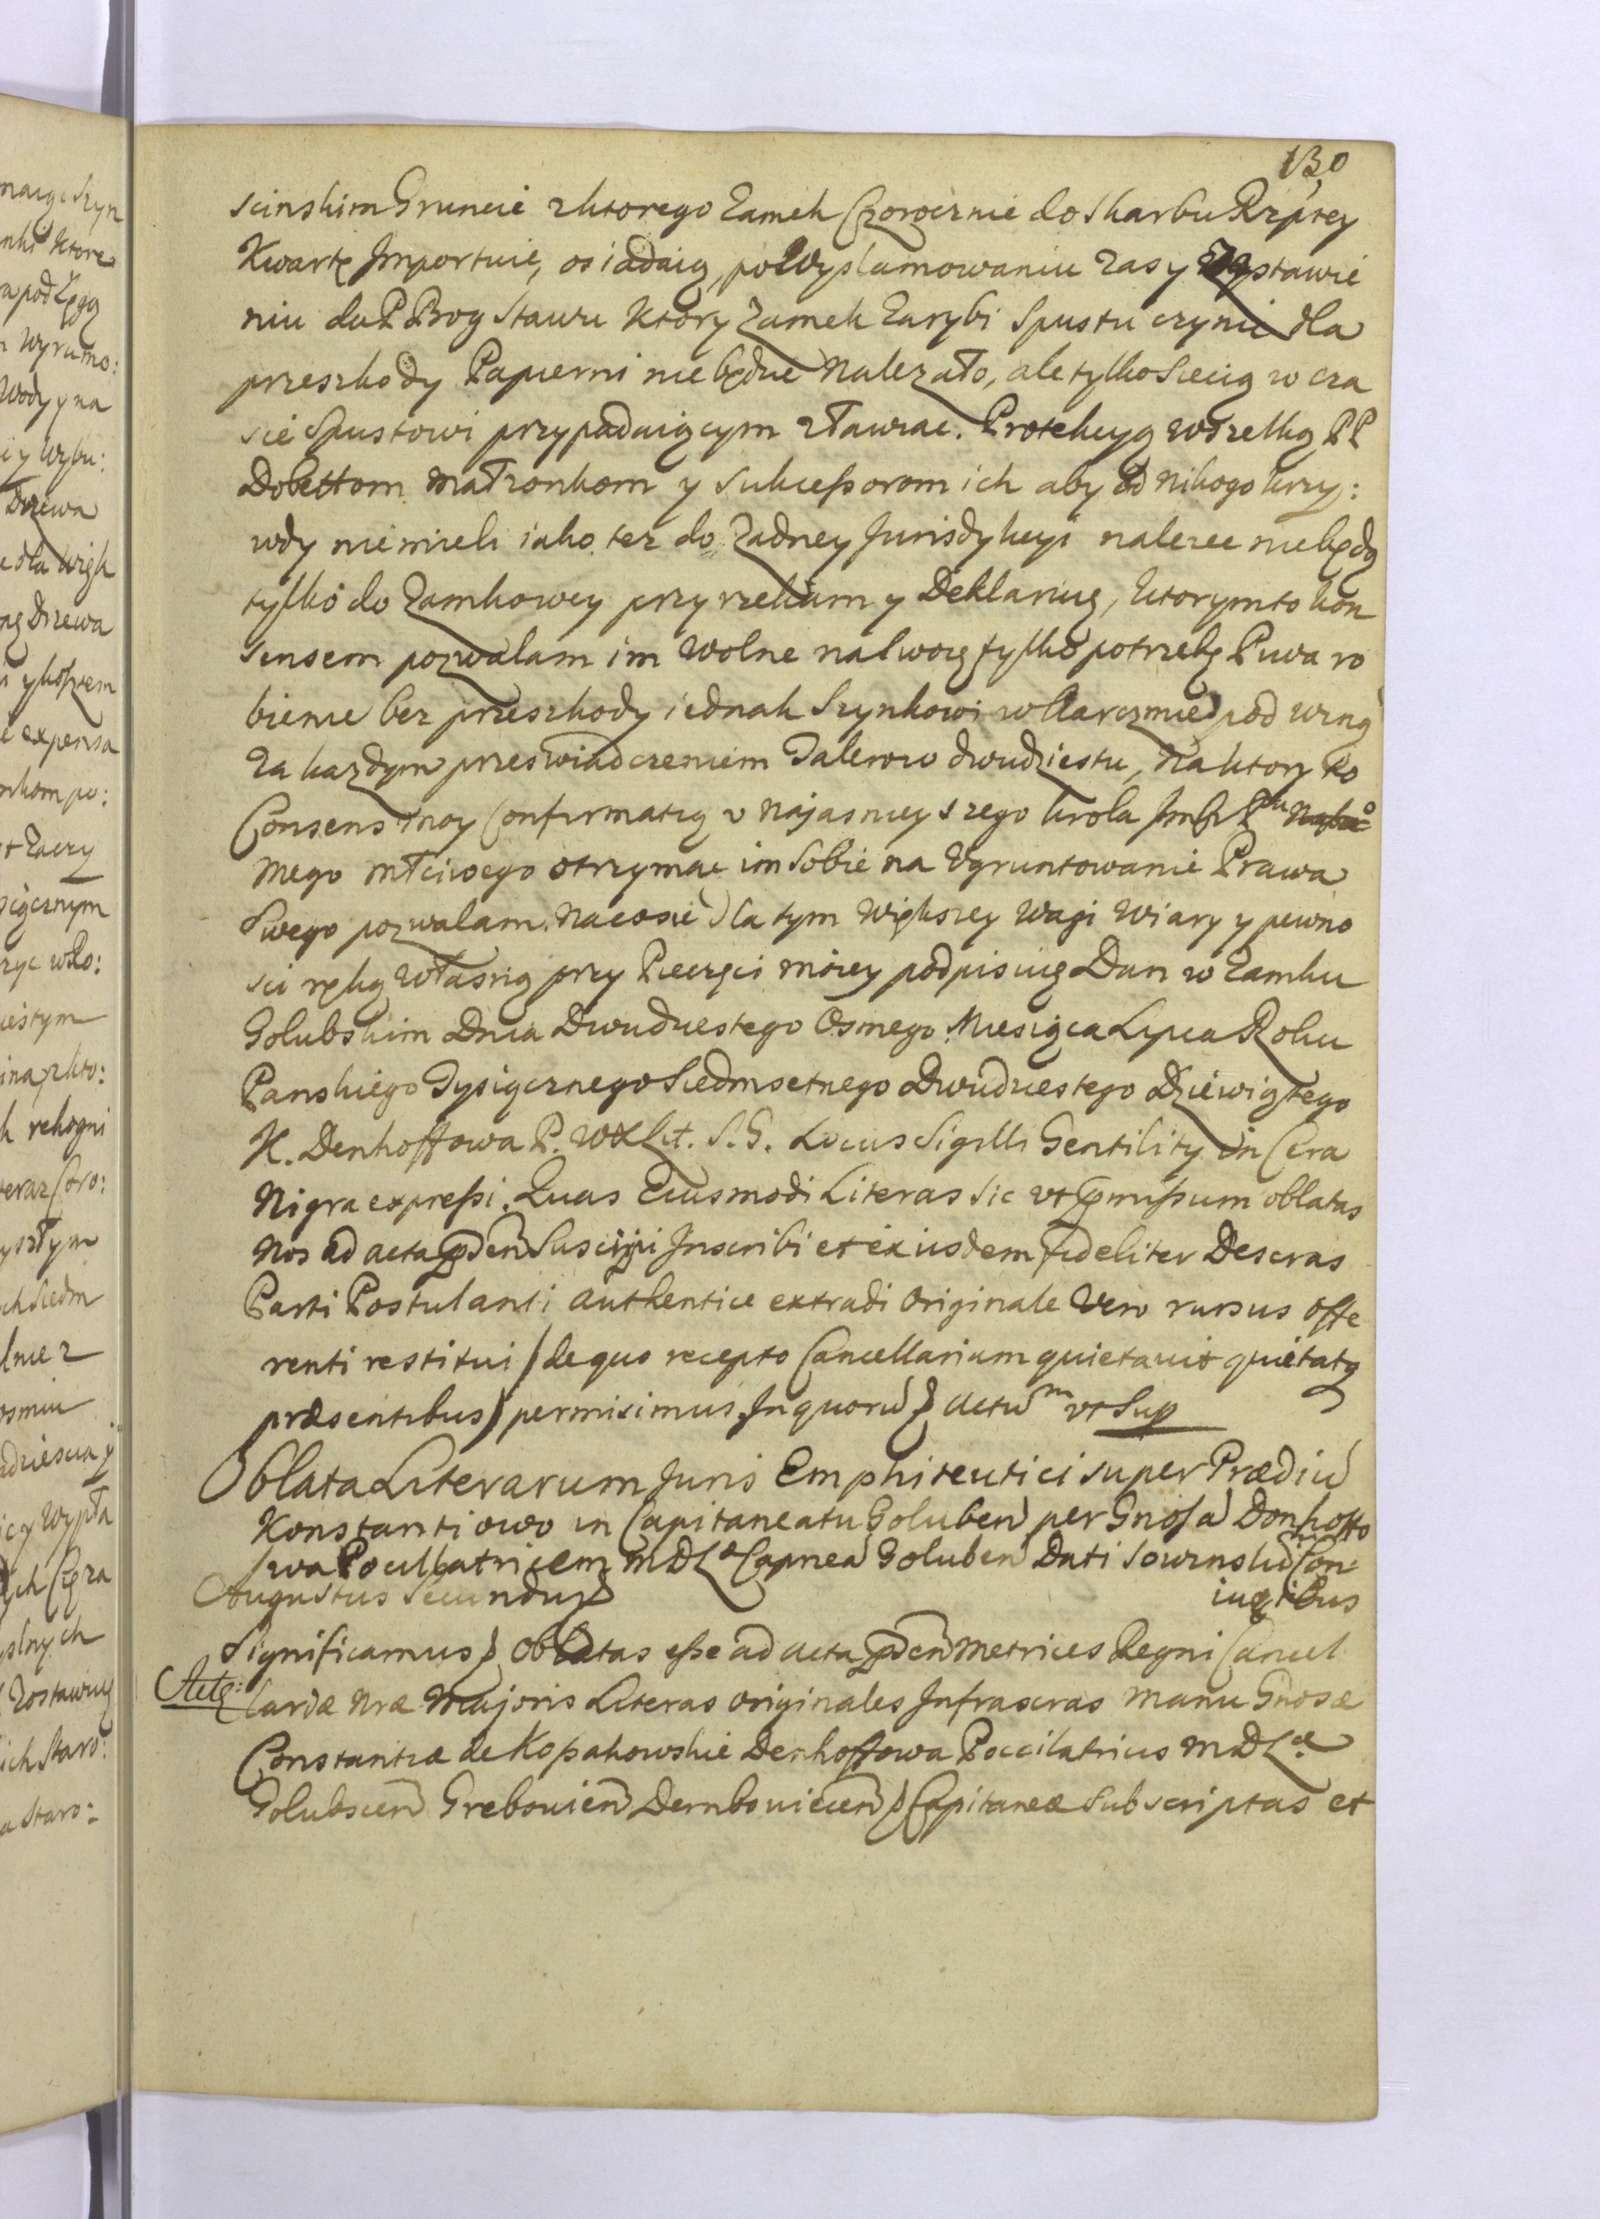 130
scinskim Gruncie z ktorego Zamek Czorocznie do Skarbu Rzptey
Kwartę Importuie, osiadaią, po Wyslamowaniu zas y Wystawie
niu da P Bog Stawu ktory Zamek Zarybi Spustu czynic dla
przeszkody Papierni nie będzie Nalezało, ale tylko Siecią w cza
sie Spustowi przypadaiącym zławiac. Protekcyą wszelką PP
Dobettom Małzonkom y Sukcessorom ich aby od nikogo krzy:
wdy niemieli iako tez do Zadney Jurisdykcyi nalezec niebędą
tylko do Zamkowey przyrzekam y Deklaruię, ktorymto kon
sensem pozwalam im Wolne na Swoią tylko potrzebę Piwa ro
bienie bez przeszkody iednak Szynkowi w Karczmie pod winą
Za kazdym przeswiadczeniem Talerow dwudziestu, Na ktory to
Consens moy Confirmatią v Najasnieyszego krola Jmsci Pana
mego Młciwego otrzymac im Sobie na Vgruntowanie Prawa
Swego pozwalam. Na co sie dla tym większey Wagi Wiary y pewno
sci ręką własną przy Pieczęci moiey podpisuię Dan w Zamku
Golubskim Dnia Dwudziestego Osmego Miesiąca Lipca Roku
Panskiego Tysiącznego Siedmsetnego Dwudziestego Dziewiątego
K. Denhoffowa P. WX Lit. S. G. Locus Sigilli Gentility in Cera
Nigra expressi. Quas Eiusmodi Literas sic vt pmissum oblatas
Nos ad acta pden Suscipi Inscribi et exiisdem fideliter Descras
Parti Postulanti authentice extradi Originale Vero rursus offe
renti restitui (de quo recepto Cancellariam quietavit quietatq
præsentibus) permisimus. In quoru actu m vt Sup
Oblata Literarum Juris Emphiteutici super Prædiu
Konstantiowo in Capitaneatu Goluben per Gnosa Donhoffo
wa Pocillatricem MDL Capnea Goluben Dati Sowinski Con:
iugibus
Augustus Secundus
Significamus Oblatas esse ad acta pden Metrices Regni Cancel
Acta:
lariæ Nræ Majoris Literas originales Infrascras manu Gnosæ
Constantiæ de Kossakowskie Denhoffowa Poccilatricis MDL
Golubscen Grebovien Demboviecen Capitaneæ Subscriptas et